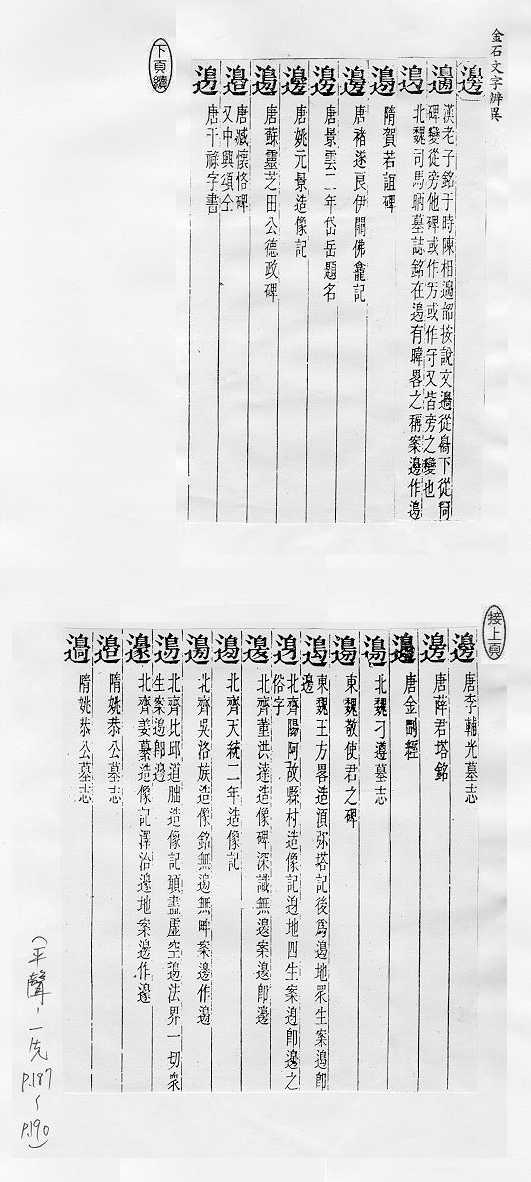 金石文字辨異
邊
邊 漢老子銘于時陳相邊韶按說文邊從臱下從
碑變從旁他碑或作方或作守又皆旁之變也
邊 北魏司馬昞墓誌銘在邊有暐畧之稱案邊作邊
邊 隋賀若誼碑
邊 唐褚遂良伊闕佛龕記
邊 唐景雲二年岱岳題名
邊 唐姚元景造像記
邊 唐蘇靈芝田公德政碑
邊 唐臧懷恪碑
又中興頌仝
邊 唐干祿字書
下頁續
接上頁
邊 唐李輔光墓志
邊 唐薛君塔銘
邊 唐金剛經
邊 北魏刁遵墓志
邊 東魏敬使君之碑
邊 東魏王方畧造須弥塔記後爲邊地衆生案邊即
邊
邊 北齊陽阿故縣村造像記邊地四生案邊即邊之
俗字
邊 北齊董洪達造像碑深識無邊案邊即邊
邊 北齊天統二年造像記
邊 北齊吳洛族造像銘無邊無畔案邊作邊
邊 北齊比邱道朏造像記頭盡虛空邊法界一切衆
生案邊即邊
邊 北齊姜纂造像記澤洽邊地案邊作邊
邊 隋姚恭公墓志
邊 隋姚恭公墓志
(平聲-一先
P.187
~
P.190)